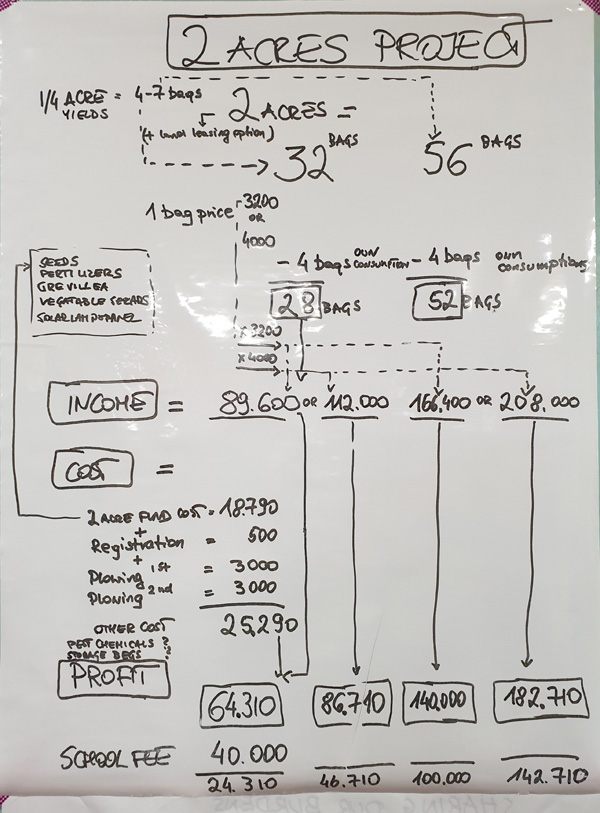 2 ACRES PROJECT
1/4 ACRE = 4-7 bags
YIELDS
2 ACRES =
(+ land leasing option)
32 BAGS
56 BAGS
1 bag price
3200
OR
4000
- 4 bags OWN CONSUMPTION
- 4 bags own consumptions
SEEDS
FERTILIZERS
GREVILLEA
VEGATABLE SEEADS
SOLAR LAMP+PANEL
28 BAGS
52 BAGS
x 3200
x 4000
INCOME = 89.600 OR 112.000 166.400 OR 208.000
COST =
2 ACRE FUND COST = 18.790
+
Registration = 500
+
Plowing 1st = 3000
Plowing 2nd = 3000
25,290
OTHER COST
PEST CHEMICALS ?
STORAGE BEGS ?
PROFIT
64.310 86.710 140.000 182.710
SCHOOL FEE 40.000
24.310 46.710 100.000 142.710
SHARING OUR BURDENS